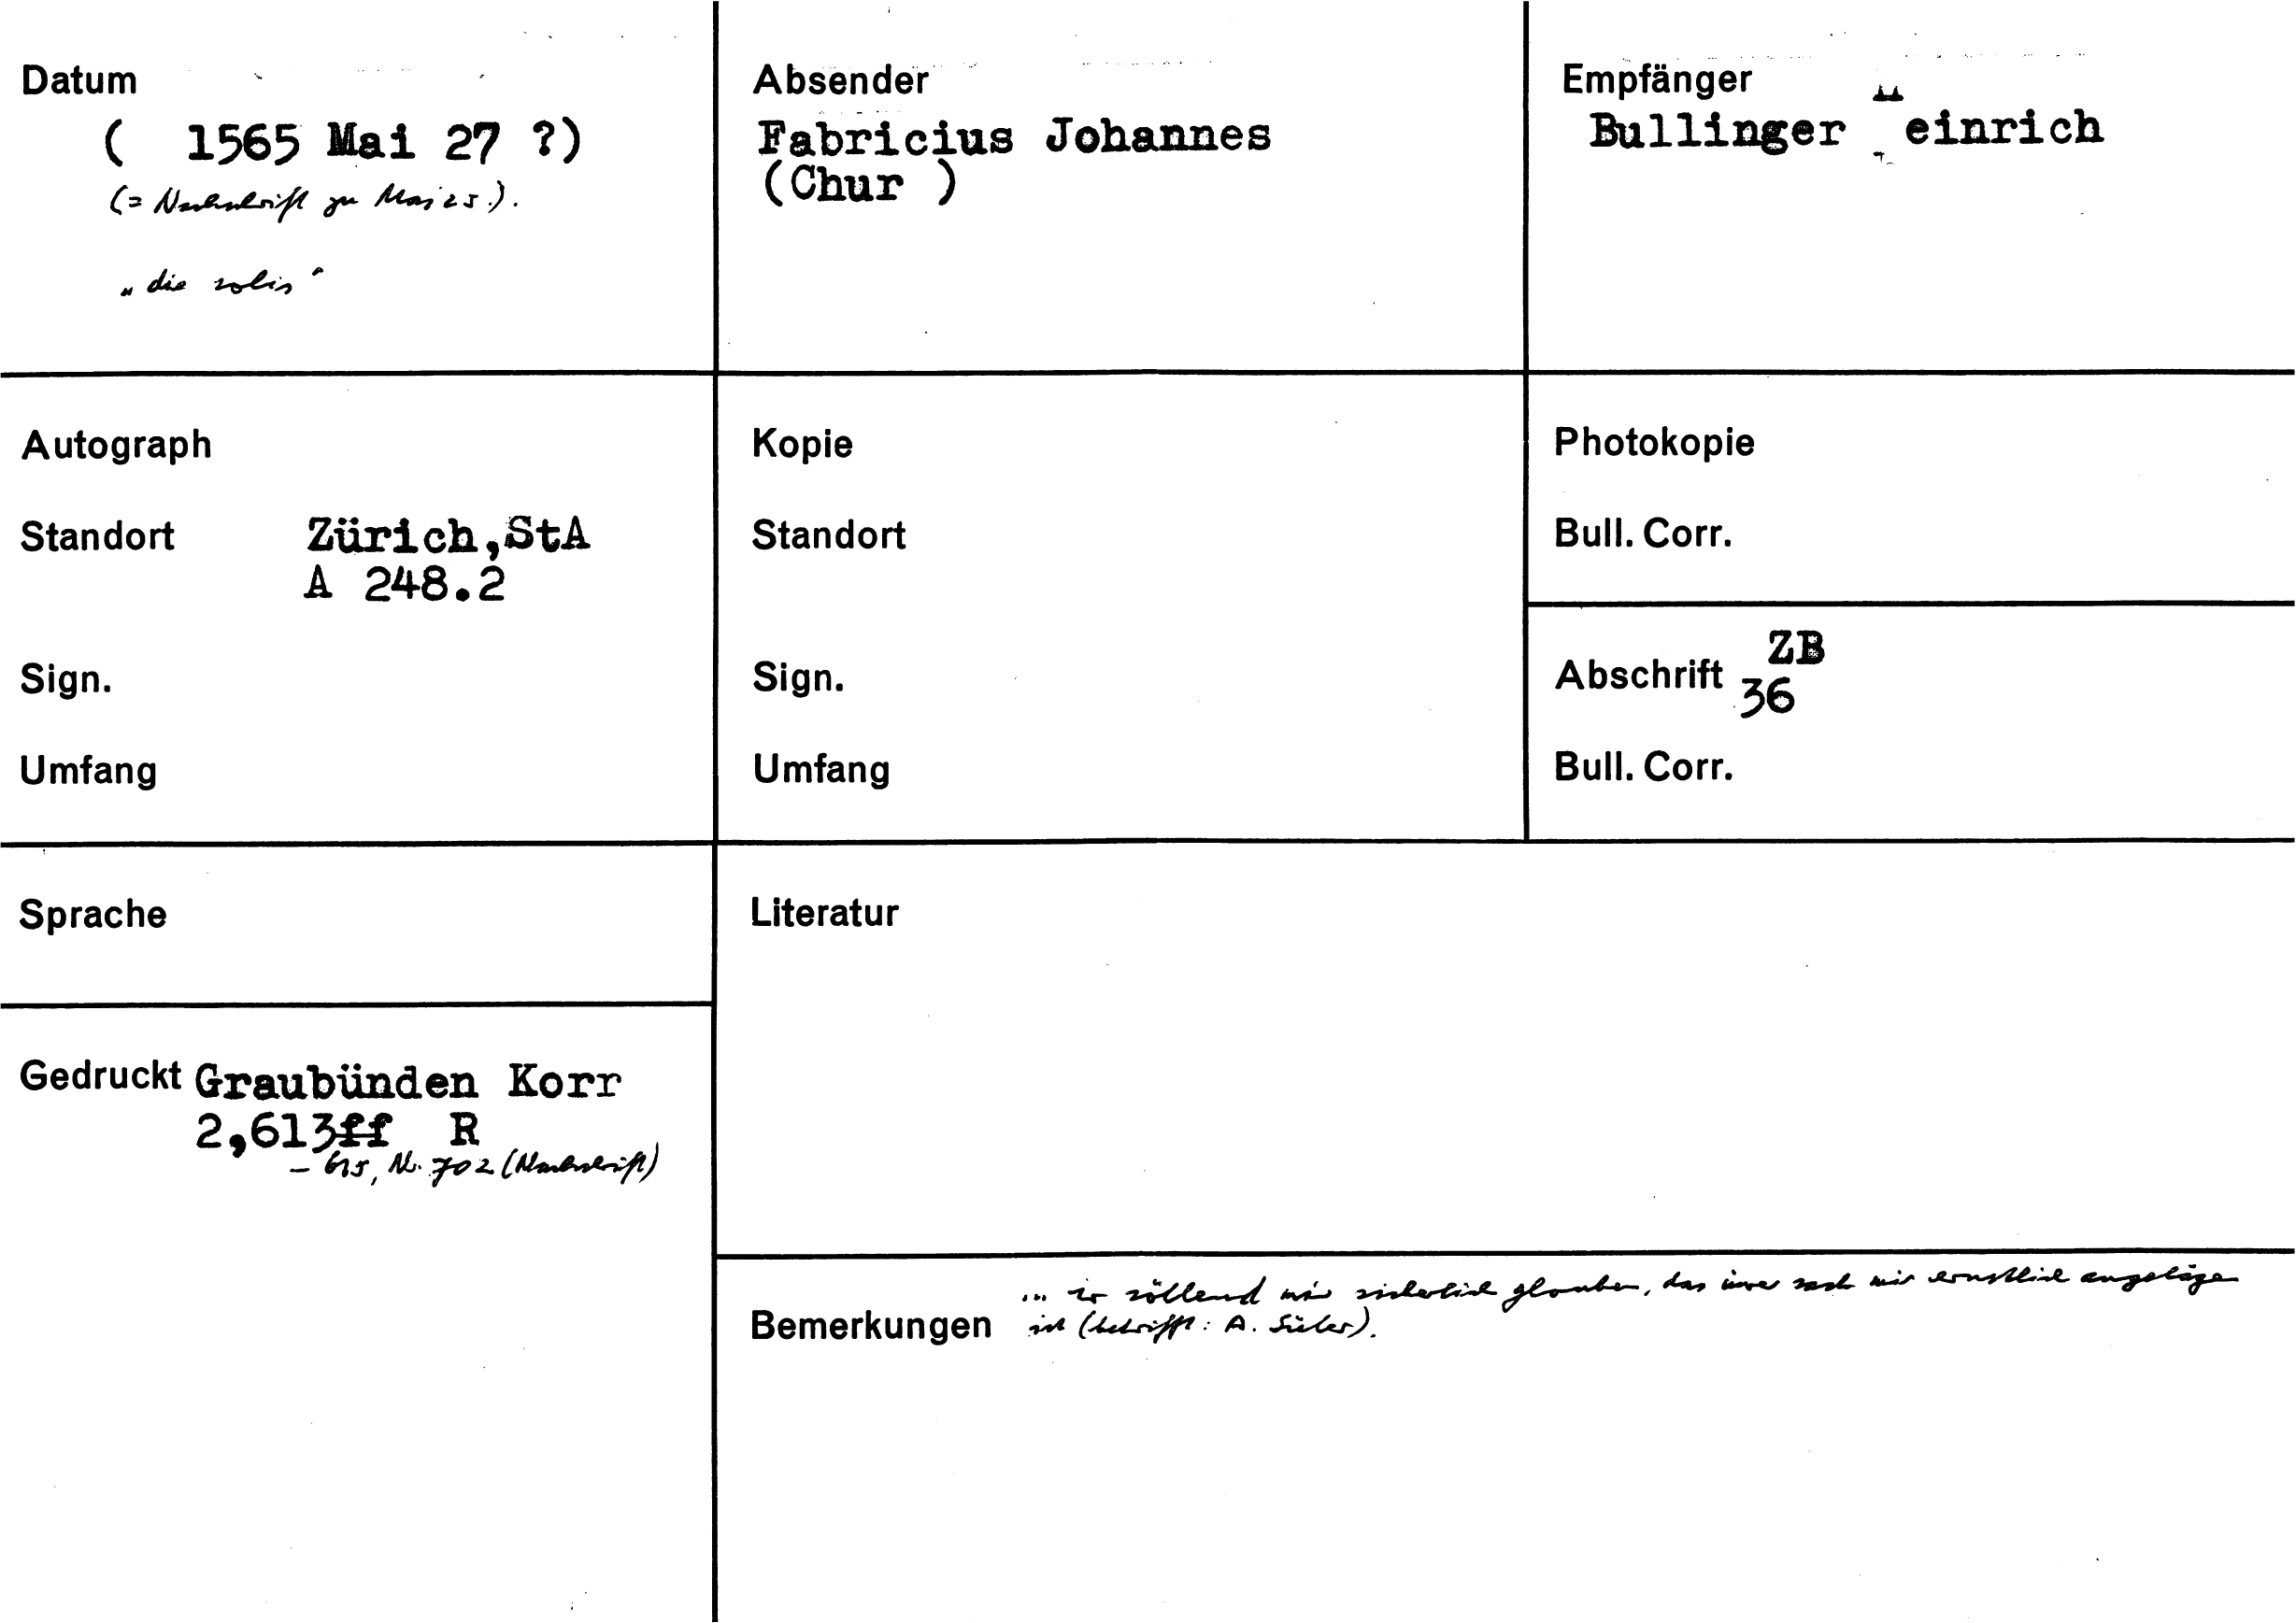 Datum
( 1565 Mai 27 ?)
(= Nachschrift zu Mai 25.).
„die solis"
Absender
Fabricius Johannes
(Chur )
Empfänger
Bullinger einrich
Autograph
Standort Zürich,StA
A 248.2
Sign.
Umfang
Kopie
Standort
Sign.
Umfang
Photokopie
Bull. Corr.
ZB
Abschrift 36
Bull. Corr.
Sprache
Gedruckt Graubünden Korr
2,613ff R
– 615, Nr. 702 (Nachschrift)
Literatur
... ir söllend mir sicherlich glouben, das üwer sach mir ernstlich angelägen
Bemerkungen ist (betrifft: A. Süler).